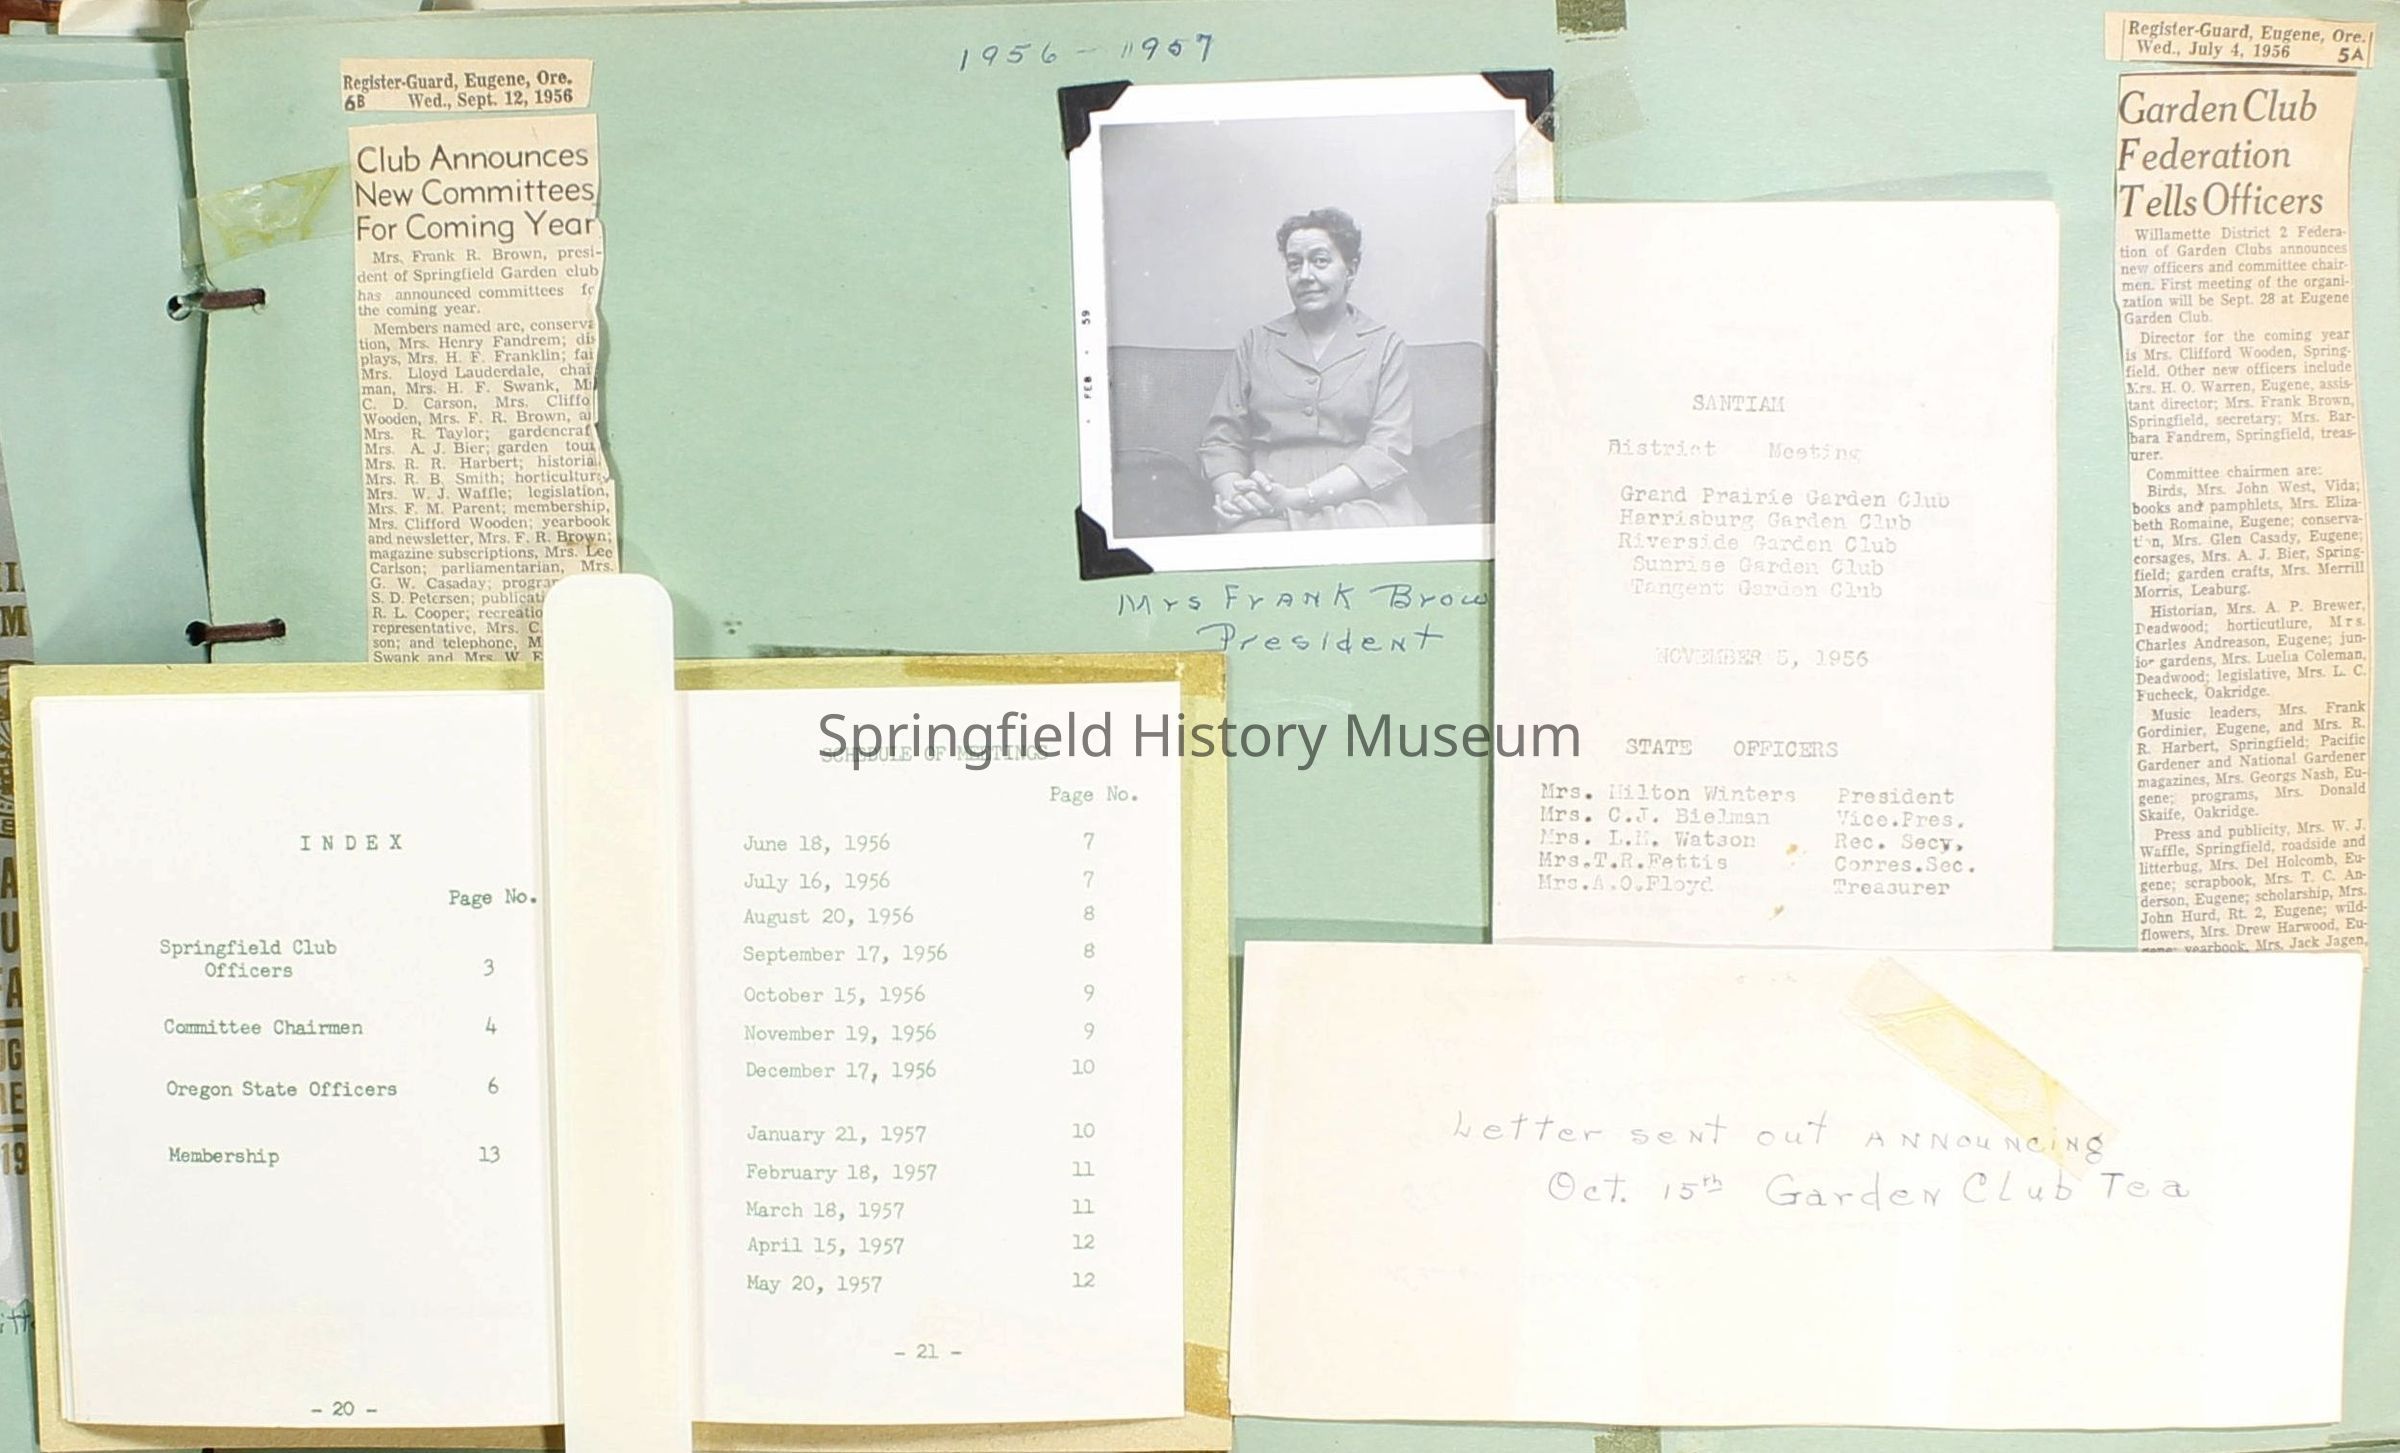 1956 - 1957
Register-Guard, Eugene, Ore.
6B Wed., Sept. 12, 1956
Club Announces
New Committees
For Coming Year
Mrs. Frank R. Brown, presi-
dent of Springfield Garden club
has announced committees
the coming year.
Members named are,
tion, Mrs. Henry Fandrem;
plays, Mrs. H. F. Franklin;
Mrs. Lloyd Lauderdale,
man, Mrs. H. F. Swank,
C. D. Carson, Mrs.
Wooden, Mrs. F. R. Brown,
Mrs. R. Taylor;
Mrs. A. J. Bier; garden
Mrs. R. R. Harbert;
Mrs. R. B. Smith;
Mrs. W. J. Waffle; legislation,
Mrs. F. M. Parent; membership,
Mrs. Clifford Wooden; yearbook
and newsletter, Mrs. F. R. Brown;
magazine subscriptions, Mrs. Lee
Carlson; parliamentarian, Mrs.
G. W. Casaday;
S. D. Petersen;
R. L. Cooper;
representative, Mrs. C.
son; and telephone,
Swank and Mrs. W.
FEB • 59
Mrs Frank
President
SANTIAM
District Meeting
Grand Prairie Garden Club
Harrisburg Garden Club
Riverside Garden Club
Sunrise Garden Club
Tangent Garden Club
NOVEMBER 5, 1956
STATE OFFICERS
Mrs. Milton Winters President
Mrs. C.J. Bielman Vice.Pres.
Mrs. L.M. Watson Rec. Secy.
Mrs.T.R.Fettis Corres.Sec.
Mrs.A.O.Floyd Treasurer
Register-Guard, Eugene, Ore.
Wed., July 4, 1956 5A
Garden Club
Federation
Tells Officers
Willamette District 2 Federa-
tion of Garden Clubs announces
new officers and committee chair-
men. First meeting of the organi-
zation will be Sept. 28 at Eugene
Garden Club.
Director for the coming year
is Mrs. Clifford Wooden, Spring-
field. Other new officers include
Mrs. H. O. Warren, Eugene, assis-
tant director; Mrs. Frank Brown,
Springfield, secretary; Mrs. Bar-
bara Fandrem, Springfield, treas-
urer.
Committee chairmen are:
Birds, Mrs. John West, Vida;
books and pamphlets, Mrs. Eliza-
beth Romaine, Eugene; conserva-
tion, Mrs. Glen Casady, Eugene;
corsages, Mrs. A. J. Bier, Spring-
field; garden crafts, Mrs. Merrill
Morris, Leaburg.
Historian, Mrs. A. P. Brewer,
Deadwood; horticutlure, Mrs.
Charles Andreason, Eugene; jun-
ior gardens, Mrs. Luelia Coleman,
Deadwood; legislative, Mrs. L. C.
Fucheck, Oakridge.
Music leaders, Mrs. Frank
Gordinier, Eugene, and Mrs. R.
R. Harbert, Springfield; Pacific
Gardener and National Gardener
magazines, Mrs. Georgs Nash, Eu-
gene; programs, Mrs. Donald
Skaife, Oakridge.
Press and publicity, Mrs. W. J.
Waffle, Springfield, roadside and
litterbug, Mrs. Del Holcomb, Eu-
gene; scrapbook, Mrs. T. C. An-
derson, Eugene; scholarship, Mrs.
John Hurd, Rt. 2, Eugene; wild-
flowers, Mrs. Drew Harwood, Eu-
gene; yearbook, Mrs. Jack Jagen,
Springfield History Museum
INDEX
Page No.
Springfield Club
Officers 3
Committee Chairmen 4
Oregon State Officers 6
Membership 13
- 20 -
SCHEDULE OF MEETINGS
Page No.
June 18, 1956 7
July 16, 1956 7
August 20, 1956 8
September 17, 1956 8
October 15, 1956 9
November 19, 1956 9
December 17, 1956 10
January 21, 1957 10
February 18, 1957 11
March 18, 1957 11
April 15, 1957 12
May 20, 1957 12
- 21 -
Letter sent out announcing
Oct. 15th Garden Club Tea